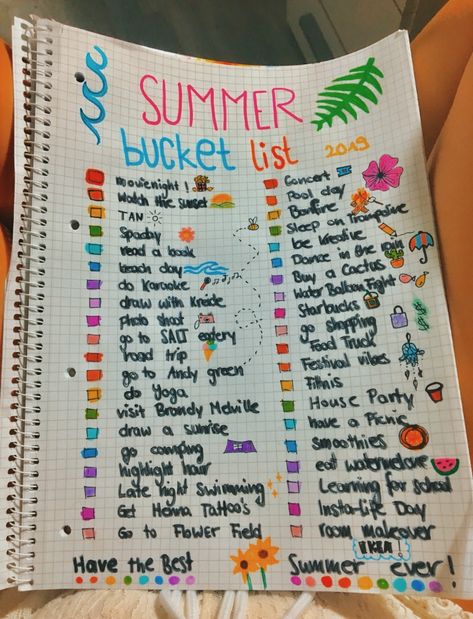 SUMMER
bucket list 2019
movienight!
Watch the sunset
TAN
Spaday
read a book
beach day
do Karaoke
draw with Kreide
Photo shoot
go to SALT eatery
road trip
go to Andy green
do Yoga
visit Brandy Melville
draw a sunrise
go camping
highlight hair
Late night Swimming
Get Henna Tattoo's
Go to Flower Field
Concert
Pool day
Bonfire
Sleep on Trampoline
be kreative
Dance in the rain
Buy a Cactus
Water Balloon Fight
Starbucks
go shopping
Food Truck
Festival vibes
Fitnis
House Party
have a Picnic
smoothies
eat watermelone
Learning for school
Insta-life Day
room makeover
IKEA!
Have the Best Summer ever!